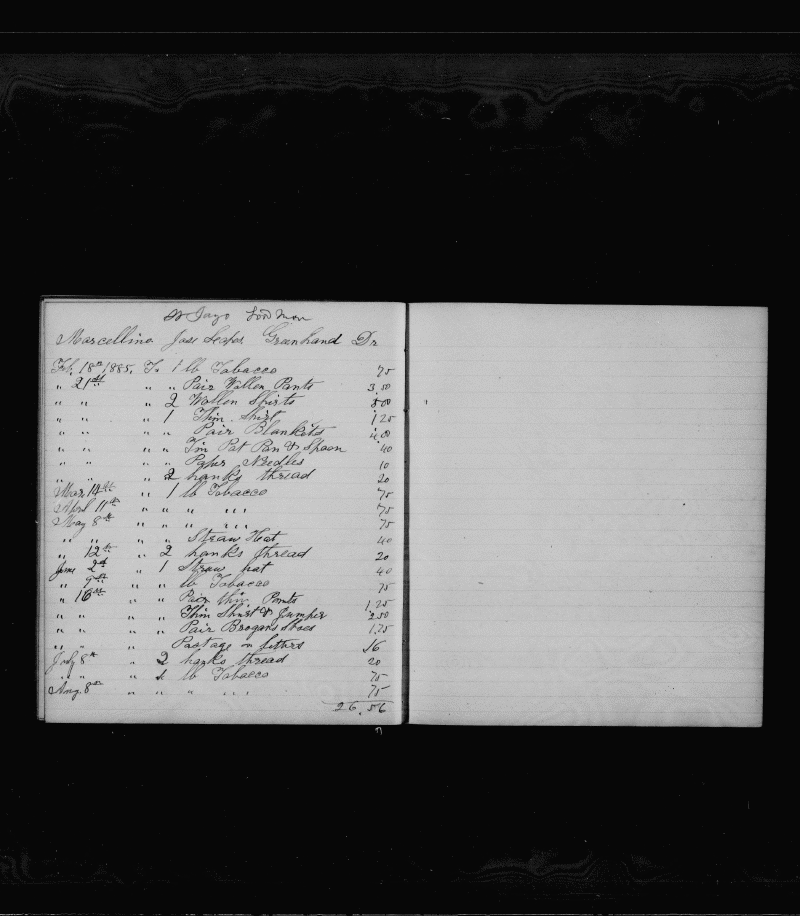 St Jago Good Man
Marcellino Jose Greenhand Dr
Feb. 18th 1885. To 1 lb Tobacco 75
" 21st " " Pair Wollen Pants 3 50
" " " 2 Wollen Shirts 5 00
" " " 1 Thin Shirt 1 25
" " " " Pair Blankits 4 00
" " " " Tin Pat Pan & Spoon 40
" " " " Paper Needles 10
" " " 2 hanks thread 20
Mar. 14th " 1 lb Tobacco 75
April 11th " " " " " 75
May 8th " " " " " 75
" " " " Straw Heat 40
" 12th " 2 hanks thread 20
June 2d " 1 Straw hat 40
" 9th " " lb Tobacco 75
" 16th " " Pair thin Pants 1.25
" " " " Thin Shirt & Jumper 2 50
" " " " Pair Brogans Shoes 1.75
" " " Postage on letters 16
July 8th " 2 hanks thread 20
" " " 1 lb Tobacco 75
Aug. 8th " " " " " 75
26.56